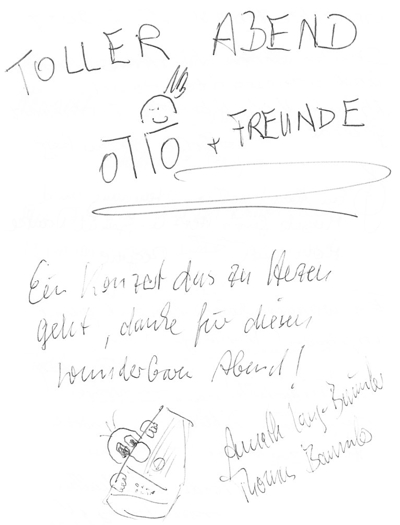 TOLLER ABEND
OTTO + FREUNDE
Ein Konzert das zu Herzen
geht, danke für diesen
wunderbaren Abend!
Thomas Bäumler